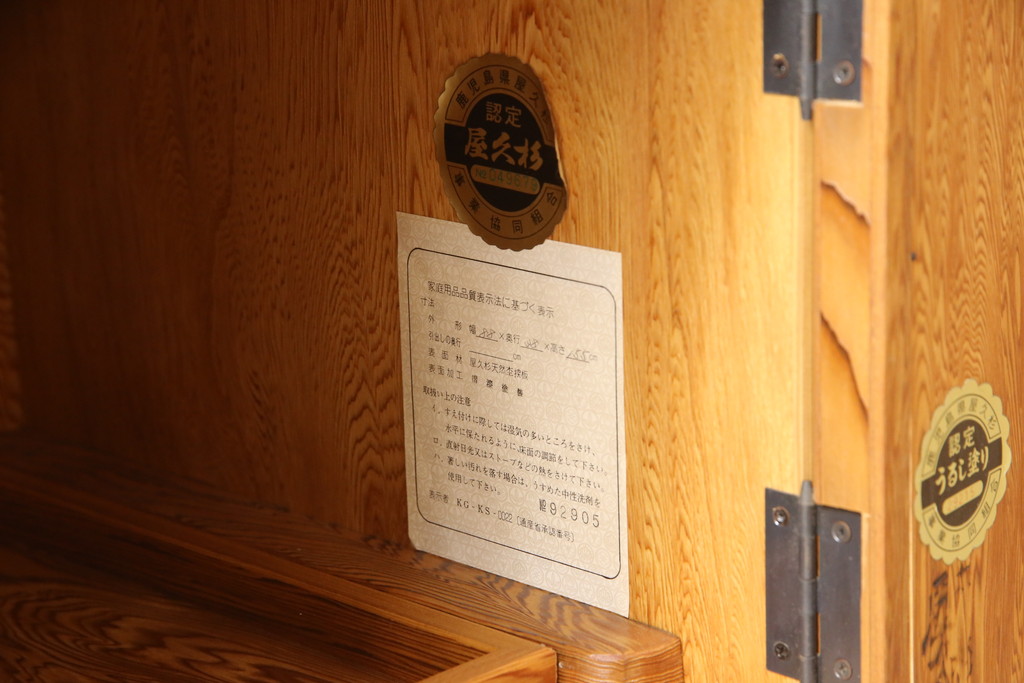 鹿児島県屋久杉
認定
屋久杉
事業協同組合
家庭用品品質表示法に基づく表示
寸法
外形 幅 ×奥行 ×高さ 155cm
引出しの奥行 cm
表面材 屋久杉天然杢抜板
表面加工
取扱い上の注意
イ、すえ付けに際しては湿気の多いところをさけ、
水平に保たれるように床面の調節をして下さい。
ロ、直射日光又はストーブなどの熱をさけて下さい。
ハ、著しい汚れを落す場合は、うすめた中性洗剤を
使用して下さい。
No 92905
表示者 KG-KS-0022 (通産省承認番号)
鹿児島県屋久杉
認定
うるし塗り
事業協同組合